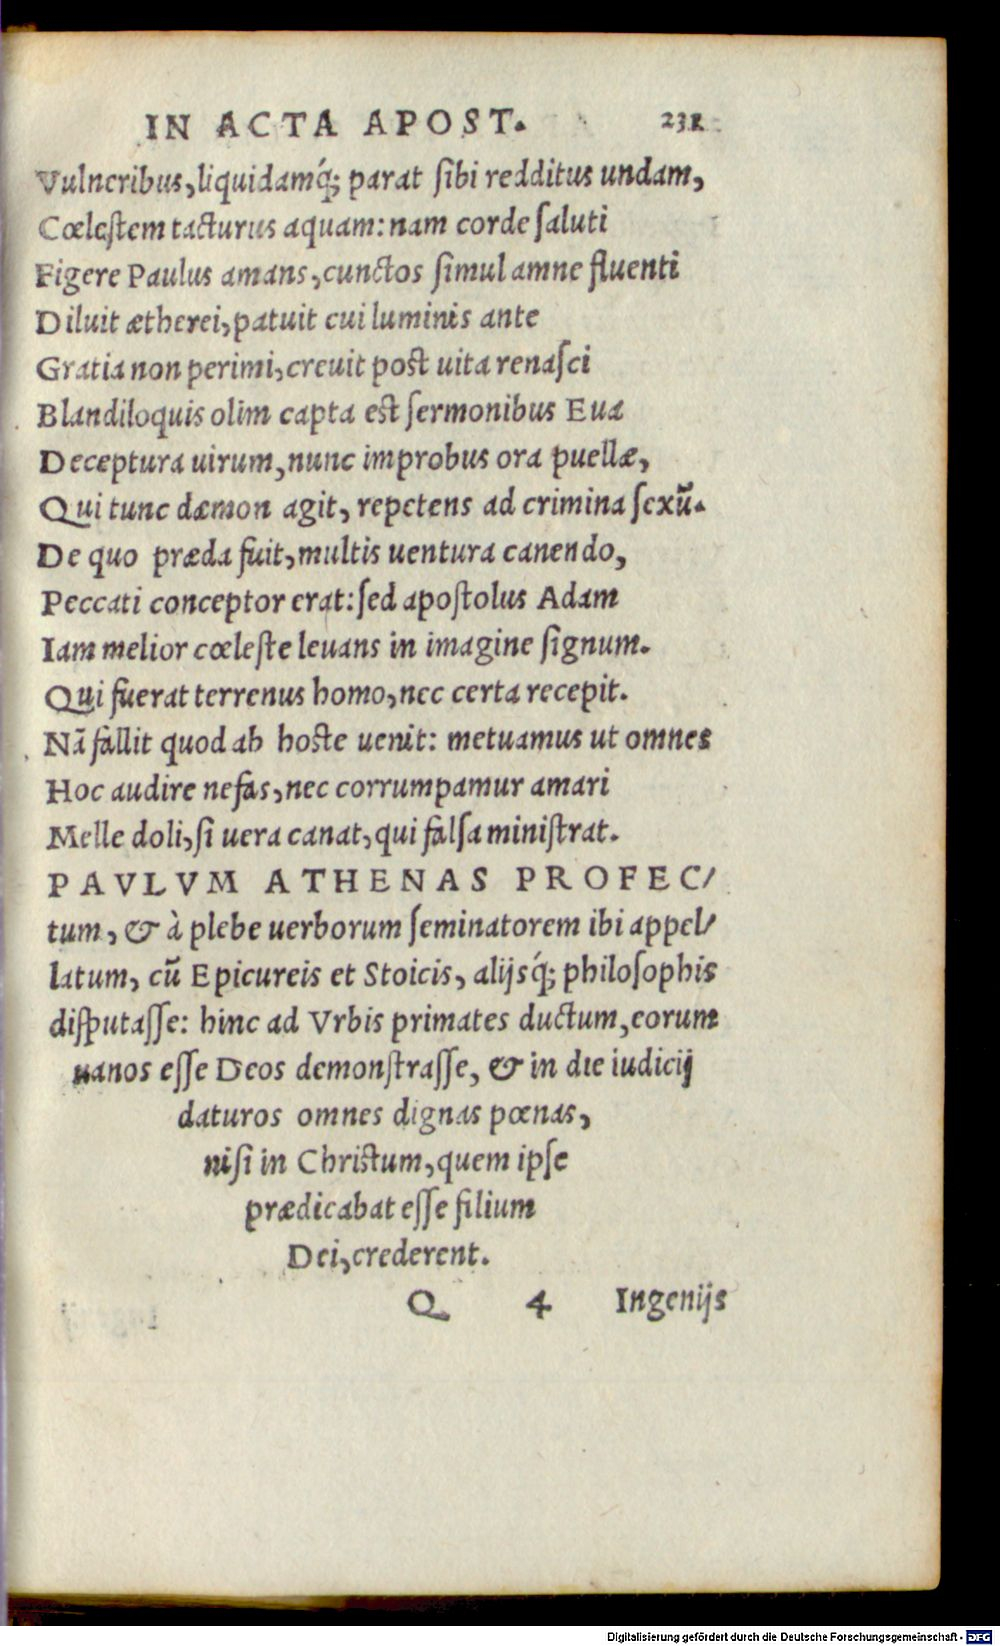 IN ACTA APOST. 231
Vulneribus, liquidamq́; parat sibi redditus undam,
Cœlestem tacturus aquam: nam corde saluti
Figere Paulus amans, cunctos simul amne fluenti
Diluit ætherei, patuit cui luminis ante
Gratia non perimi, creuit post uita renasci
Blandiloquis olim capta est sermonibus Eua
Deceptura uirum, nunc improbus ora puellæ,
Qui tunc dæmon agit, repetens ad crimina sexū.
De quo præda fuit, multis uentura canendo,
Peccati conceptor erat: sed apostolus Adam
Iam melior cœleste leuans in imagine signum.
Qui fuerat terrenus homo, nec certa recepit.
Nā fallit quod ab hoste uenit: metuamus ut omnes
Hoc audire nefas, nec corrumpamur amari
Melle doli, si uera canat, qui falsa ministrat.
PAVLVM ATHENAS PROFEC/
tum, & à plebe uerborum seminatorem ibi appel/
latum, cū Epicureis et Stoicis, alijsq́; philosophis
disputasse: hinc ad Vrbis primates ductum, eorum
uanos esse Deos demonstrasse, & in die iudicij
daturos omnes dignas pœnas,
nisi in Christum, quem ipse
prædicabat esse filium
Dei, crederent.
Q 4 Ingenijs
Digitalisierung gefördert durch die Deutsche Forschungsgemeinschaft - DFG